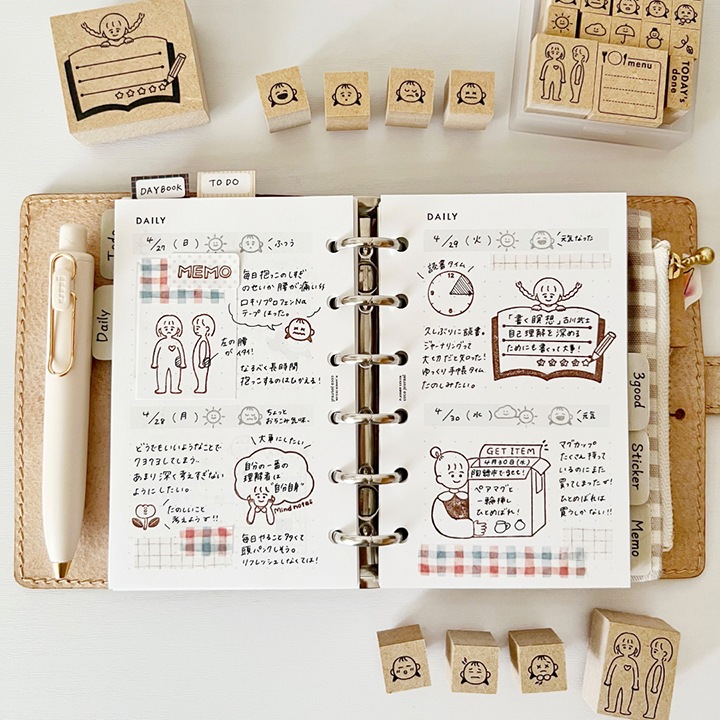 menu
TODAY's
done
DAYBOOK
TO DO
Todo
Daily
DAILY
4/27 (日) ふつう
MEMO
毎日抱っこのしすぎ
のせいか 腰が痛い
ロキソプロフェンNa
テープはった。
左の腰
がイタイ!
なるべく長時間
抱っこするのはひかえる!
4/28 (月) ちょっと
おちこみ気味。
どうでもいいようなことで
クヨクヨしてしまう。
あまり深く考えすぎない
ようにしたい。
たのしいこと
考えよう!!
大事にしたい
自分の一番の
理解者は
"自分自身"
Mind notes
毎日やること多くて
頭パンクしそう。
リフレッシュしなくては!
DAILY
4/29 (火) 元気なった
読書タイム
12
3
6
9
久しぶりに読書。
ジャーナリングって
大切だと知った!
ゆっくり手帳タイム
たのしみたい。
「書く瞑想」古川武士
自己理解を深める
ためにも書くって大事!
4/30 (水) 元気
GET ITEM
4月30日(水)
ペアマグと
一輪挿し
ひとめぼれ!
マグカップ
たくさん持って
いるのにまた
買ってしまったぞ!
ひとめぼれは
買うしかない!!
3good
Sticker
Memo